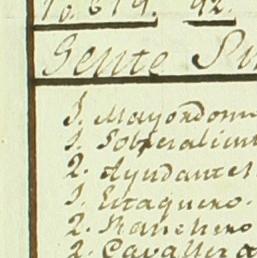 10.619. 92.
Gente Su
1. Mayordomo
1. Sobresalient
2. Ayudantes
1. Estaquero.
2. Ranchero
2. Cavallera